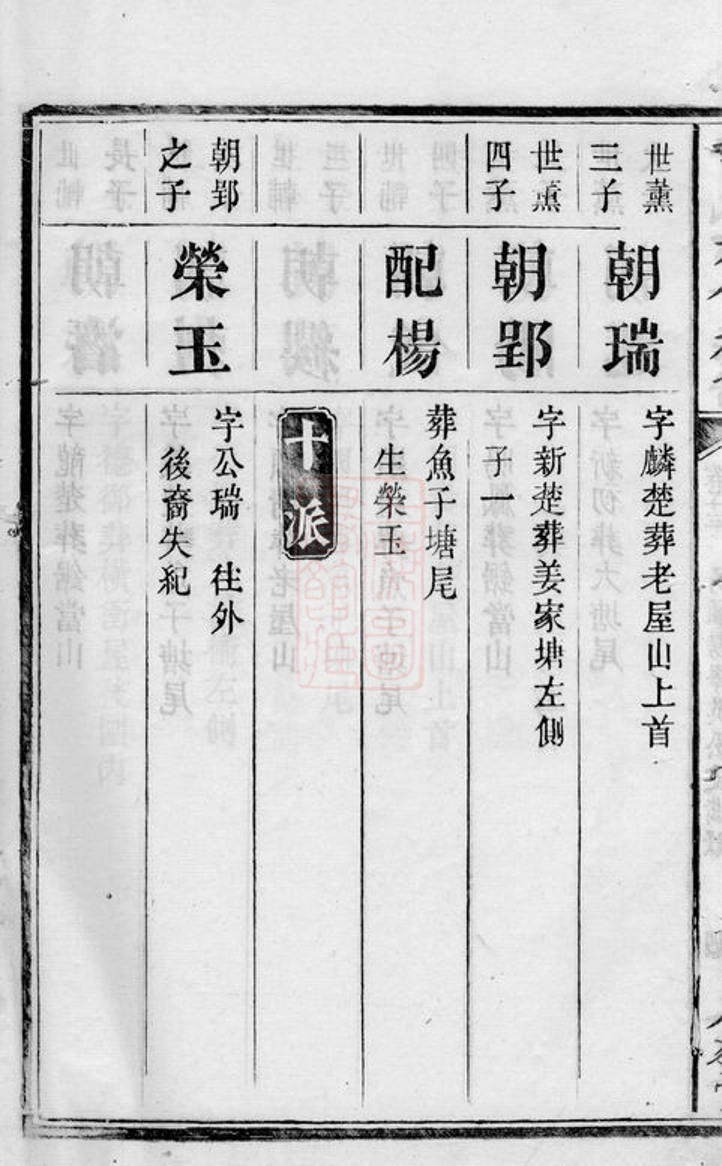 世薰
三子
朝瑞
字麟楚葬老屋山上首
世薰
四子
朝郢
字新楚葬姜家塘左側
子一
配楊
葬魚子塘尾
生榮玉
十派
朝郢
之子
榮玉
字公瑞 往外
後裔失紀